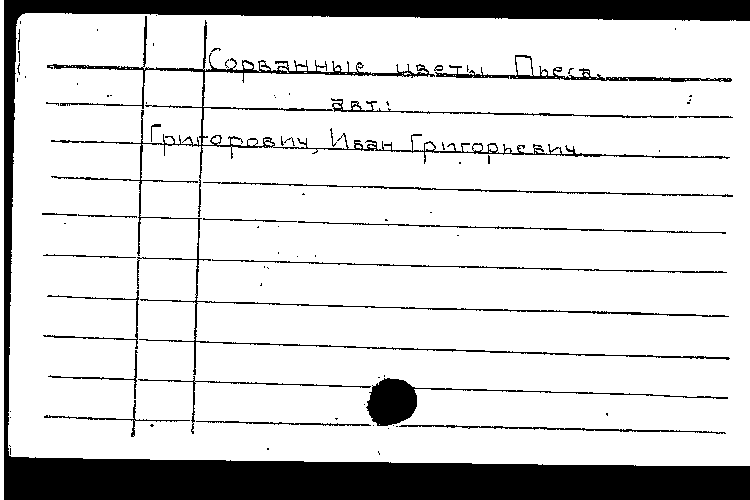 Сорванные цветы Пьеса.
авт.:
Григорович, Иван Григорьевич